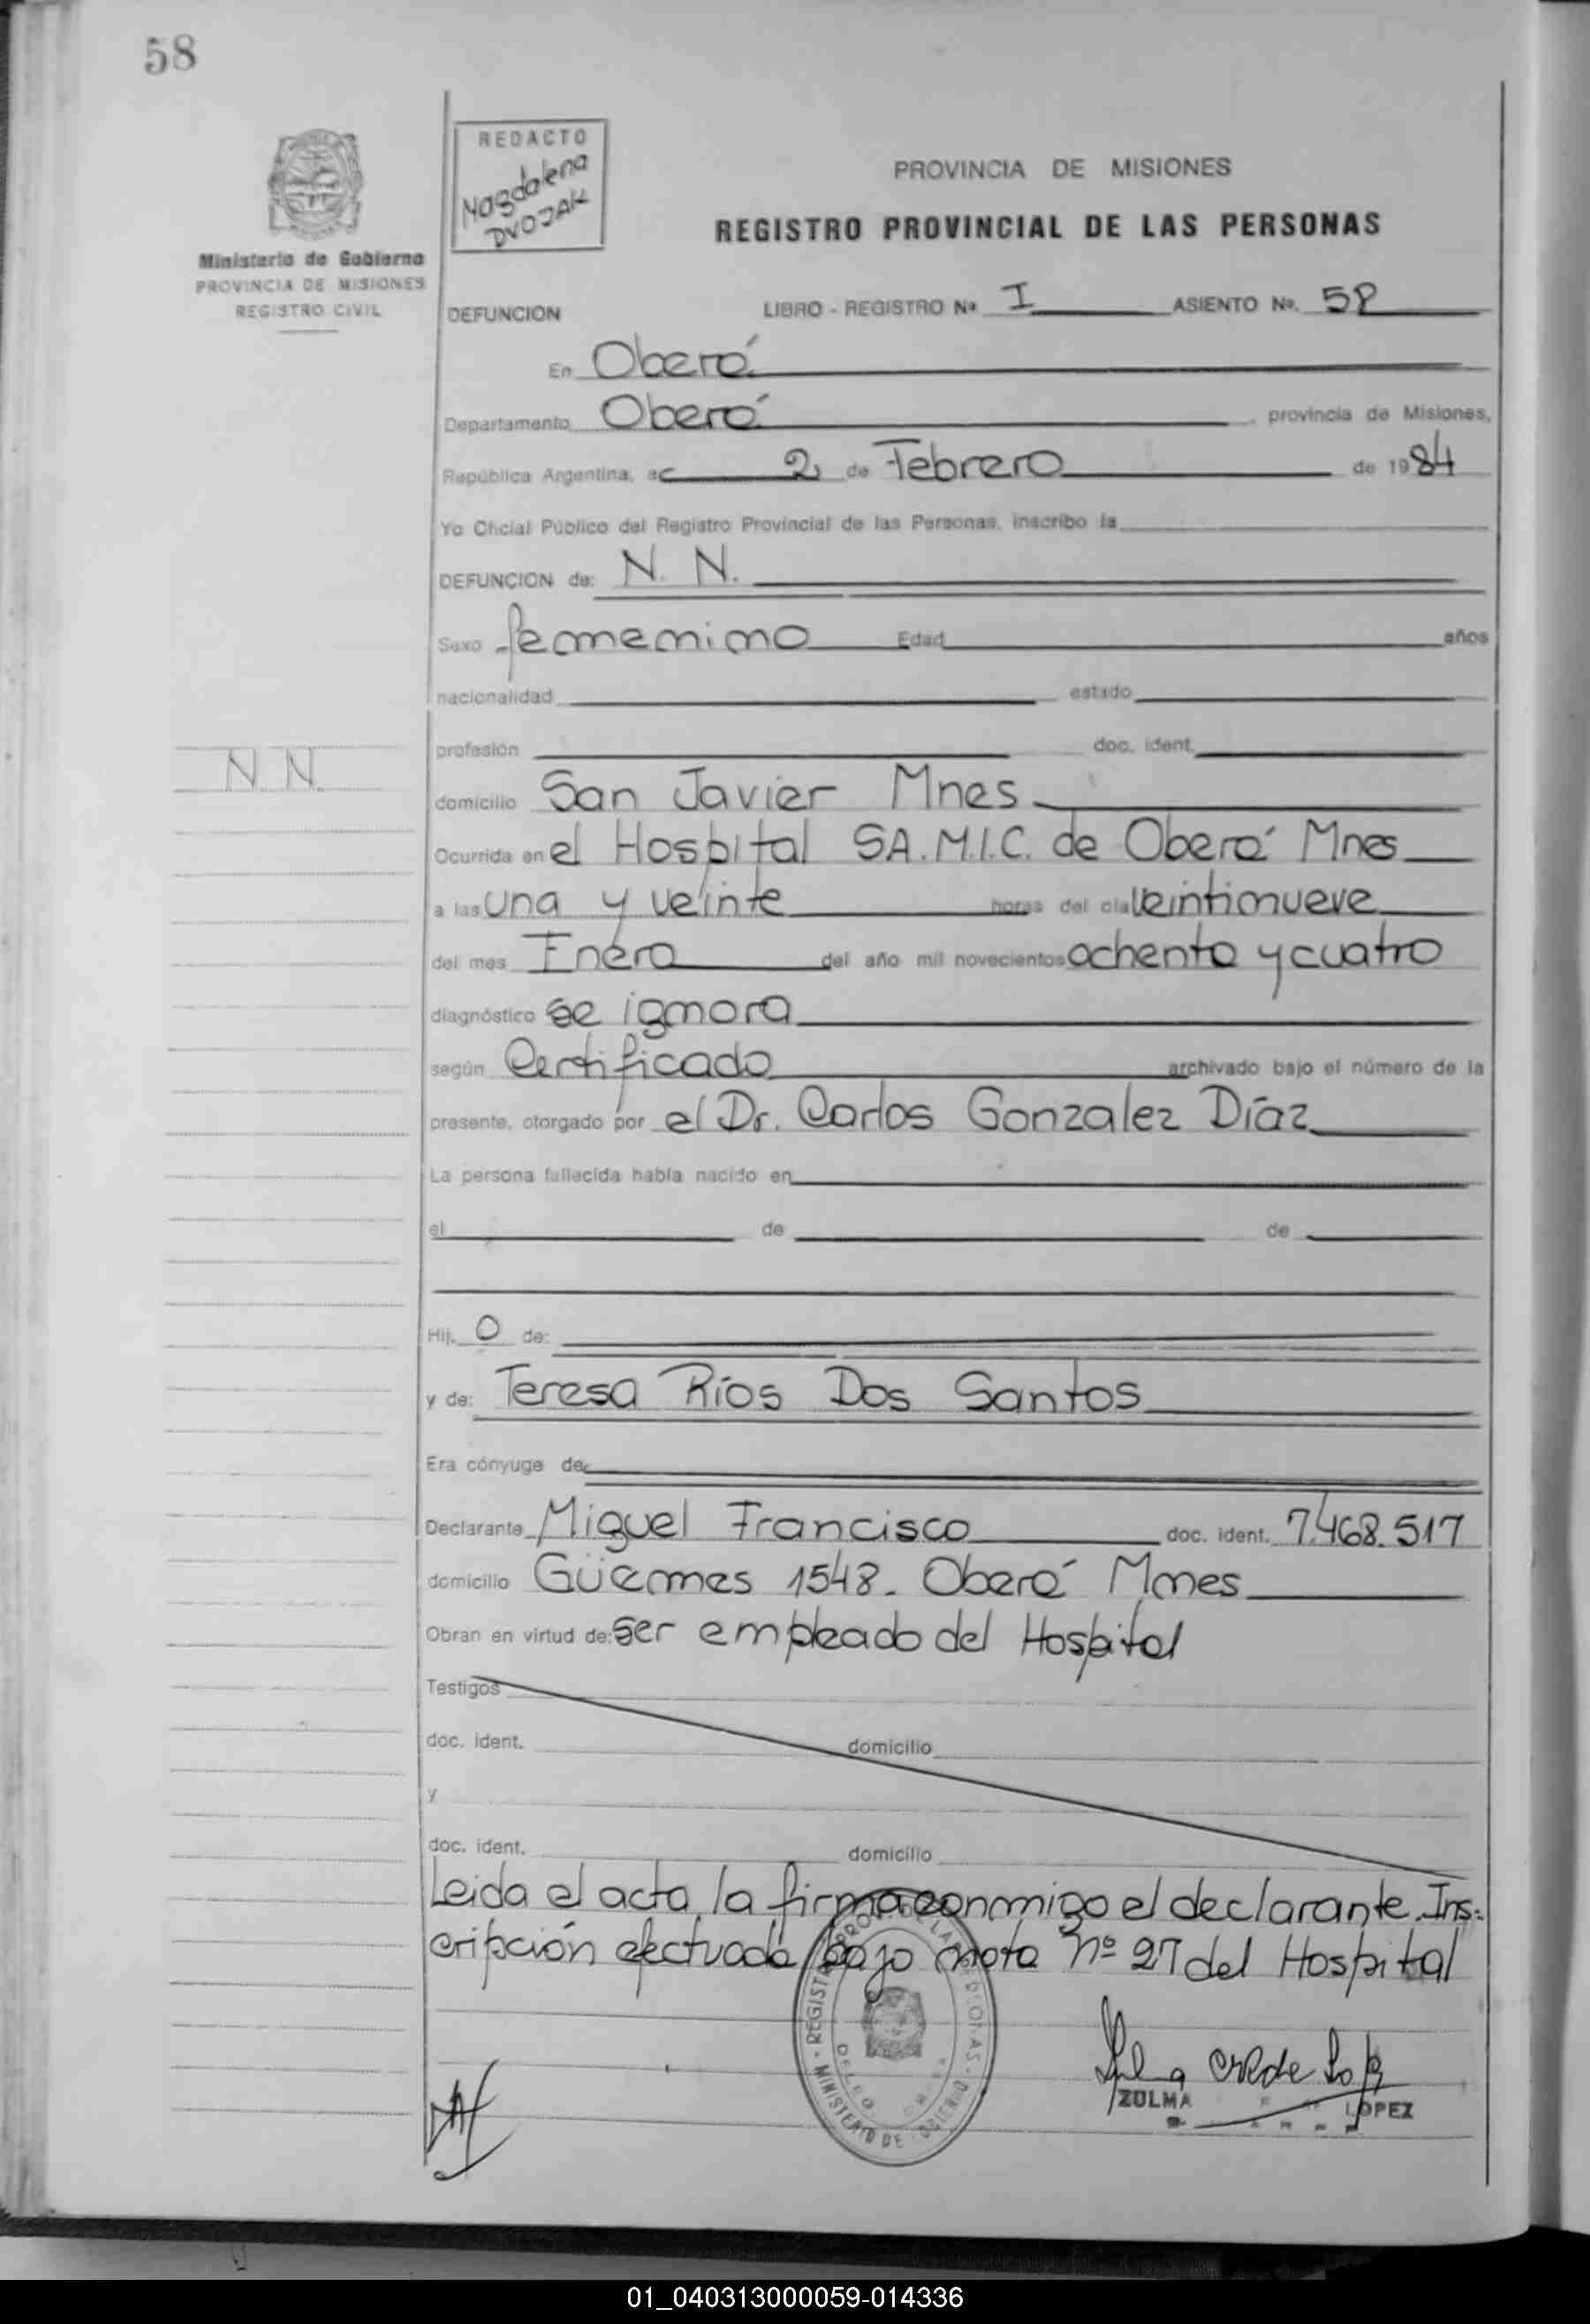 58
REDACTO
Magdalena
DVOJAK
Ministerio de Gobierno
PROVINCIA DE MISIONES
REGISTRO CIVIL
PROVINCIA DE MISIONES
REGISTRO PROVINCIAL DE LAS PERSONAS
DEFUNCION LIBRO - REGISTRO Nº I ASIENTO Nº. 58
En Oberá
Departamento Oberá, provincia de Misiones,
República Argentina, a 2 de Febrero de 1984
Yo Oficial Público del Registro Provincial de las Personas, inscribo la
DEFUNCION de: N. N.
Sexo femenino Edad años
nacionalidad estado
profesión doc. ident.
N. N.
domicilio San Javier Mnes
Ocurrida en el Hospital S.A.M.I.C. de Oberá Mnes
a las una y veinte horas del día Veintinueve
del mes Enero del año mil novecientos ochenta y cuatro
diagnóstico se ignora
según Certificado archivado bajo el número de la
presente, otorgado por el Dr. Carlos Gonzalez Díaz
La persona fallecida había nacido en
el de de
Hij. O de:
y de: Teresa Ríos Dos Santos
Era cónyuge de
Declarante Miguel Francisco doc. ident. 7.468.517
domicilio Güemes 1548. Oberá Mnes
Obran en virtud de: ser empleado del Hospital
Testigos
doc. ident. domicilio
y
doc. ident. domicilio
Leida el acta, la firma conmigo el declarante. Ins-
cripción efectuada bajo nota nº 27 del Hospital
ZULMA LOPEZ
01_040313000059-014336